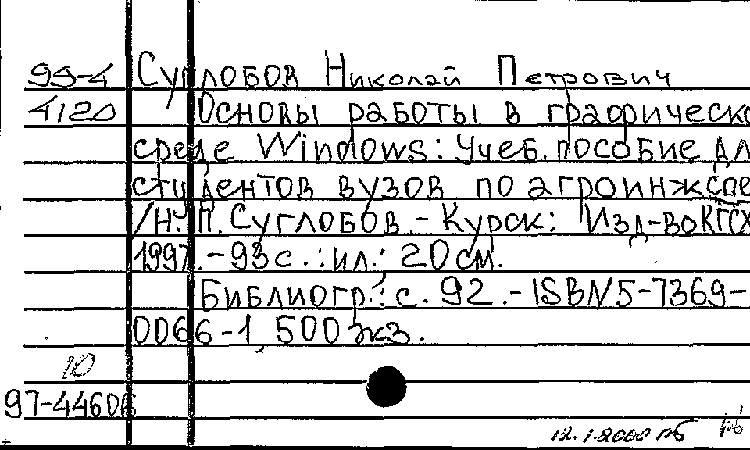 99-4 Суглобов Николай Петрович
4120 Основы работы в графическо
среде Windows: Учеб. пособие дл
студентов вузов по агроинж спе
/Н. П. Суглобов. - Курск: Изд-во КГСХ
1997. - 93 с. : ил.; 20 см.
Библиогр.: с. 92. - ISBN 5-7369-
0066-1, 500 экз.
10
97-44606
12.1.2000